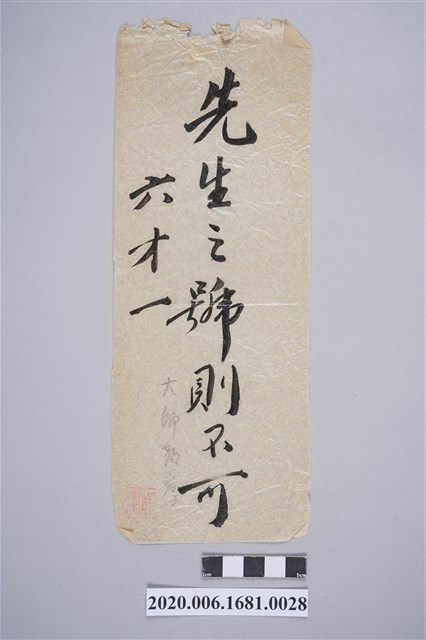 先生之號則不可
六才一
大師
2020.006.1681.0028
1cm
5cm